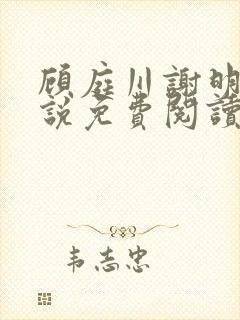 顾庭川謝明
說免費閱讀
韦志忠